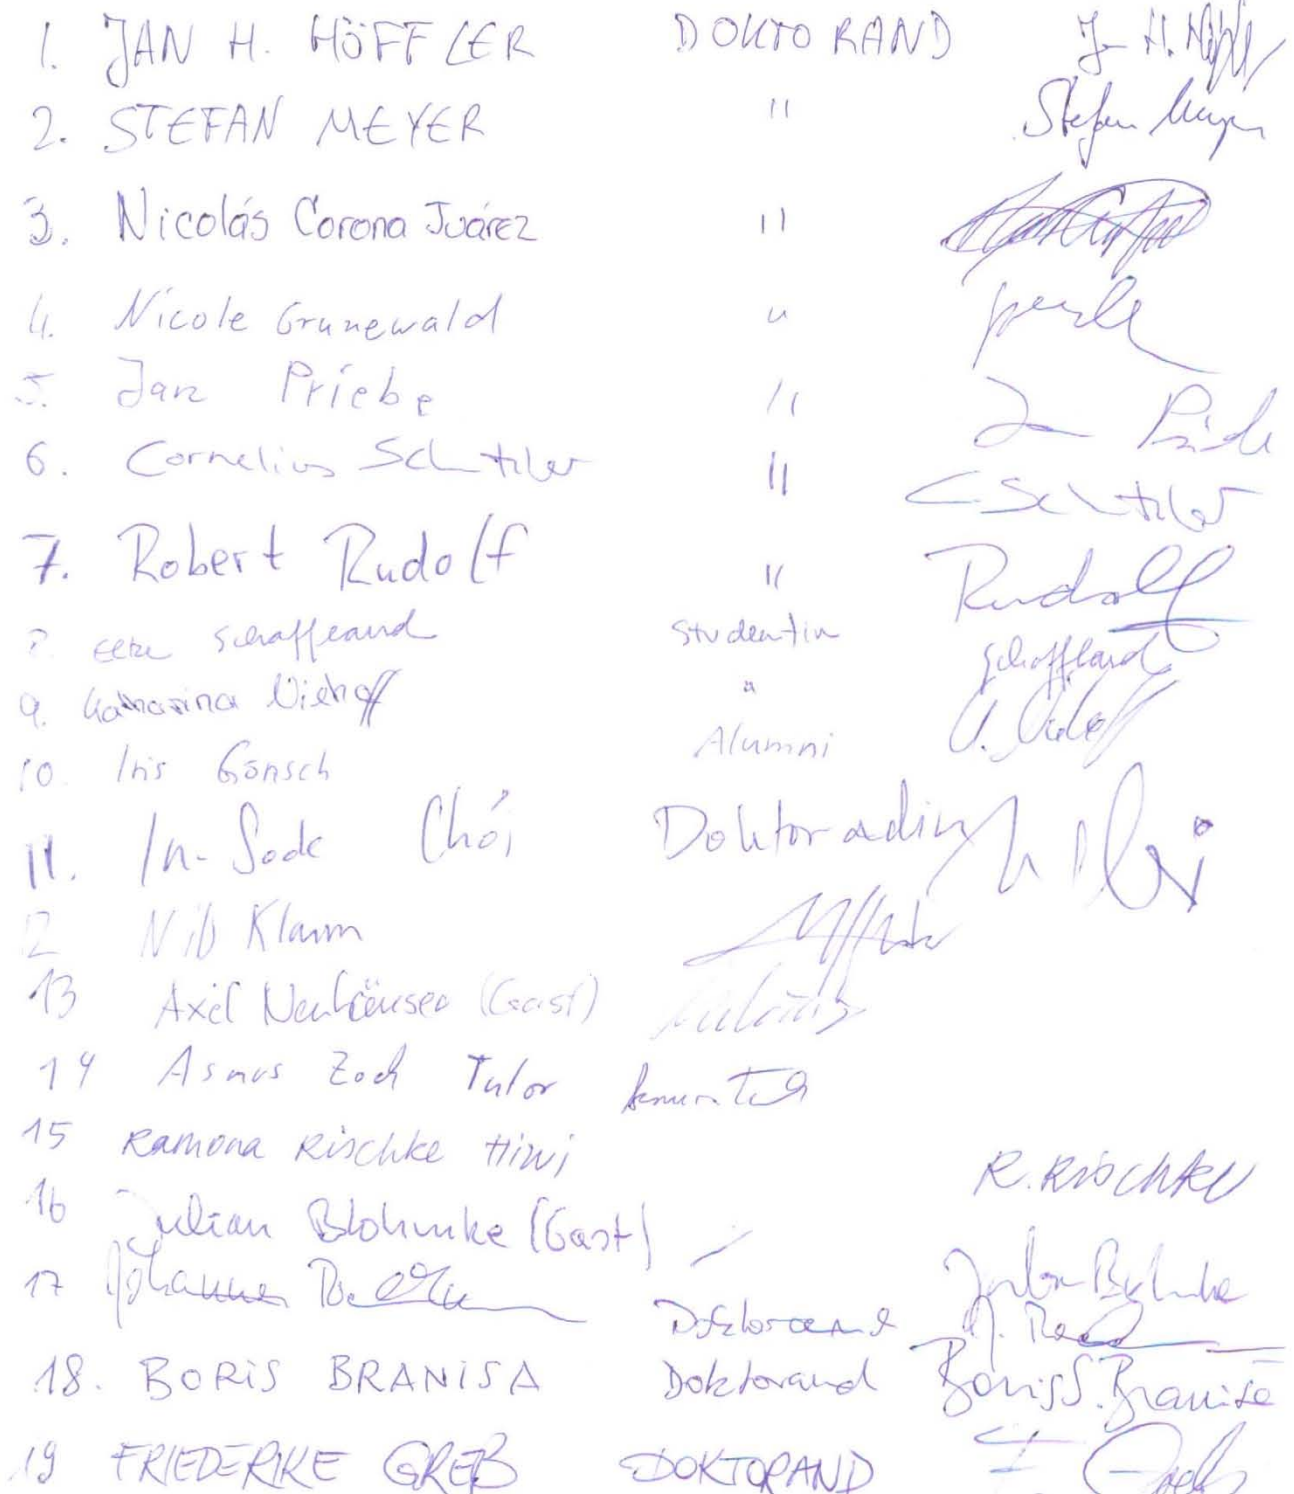 1. JAN H. HÖFFLER DOKTORAND J H. Höffler
2. STEFAN MEYER " Stefan Meyer
3. Nicolás Corona Juárez "
4. Nicole Grunewald "
5. Jan Priebe " Jan Priebe
6. Cornelius "
7. Robert Rudolf " Rudolf
8. Schaffland Studentin Schaffland
9. Katharina Niehoff " K. Niehoff
10. Iris Gönsch Alumni
11. In-Sock Choi Doktoradin
12 Klamm
13 Axel Neuhäuser (Gast)
14 Asmus Zoch Tutor
15 Ramona Rischke Hiwi R. Rischke
16 Julian Blohmke (Gast) Julian Blohmke
17 Johannes Doktorand
18. BORIS BRANISA Doktorand Boris S. Branisa
19 FRIEDERIKE GREB DOKTORAND